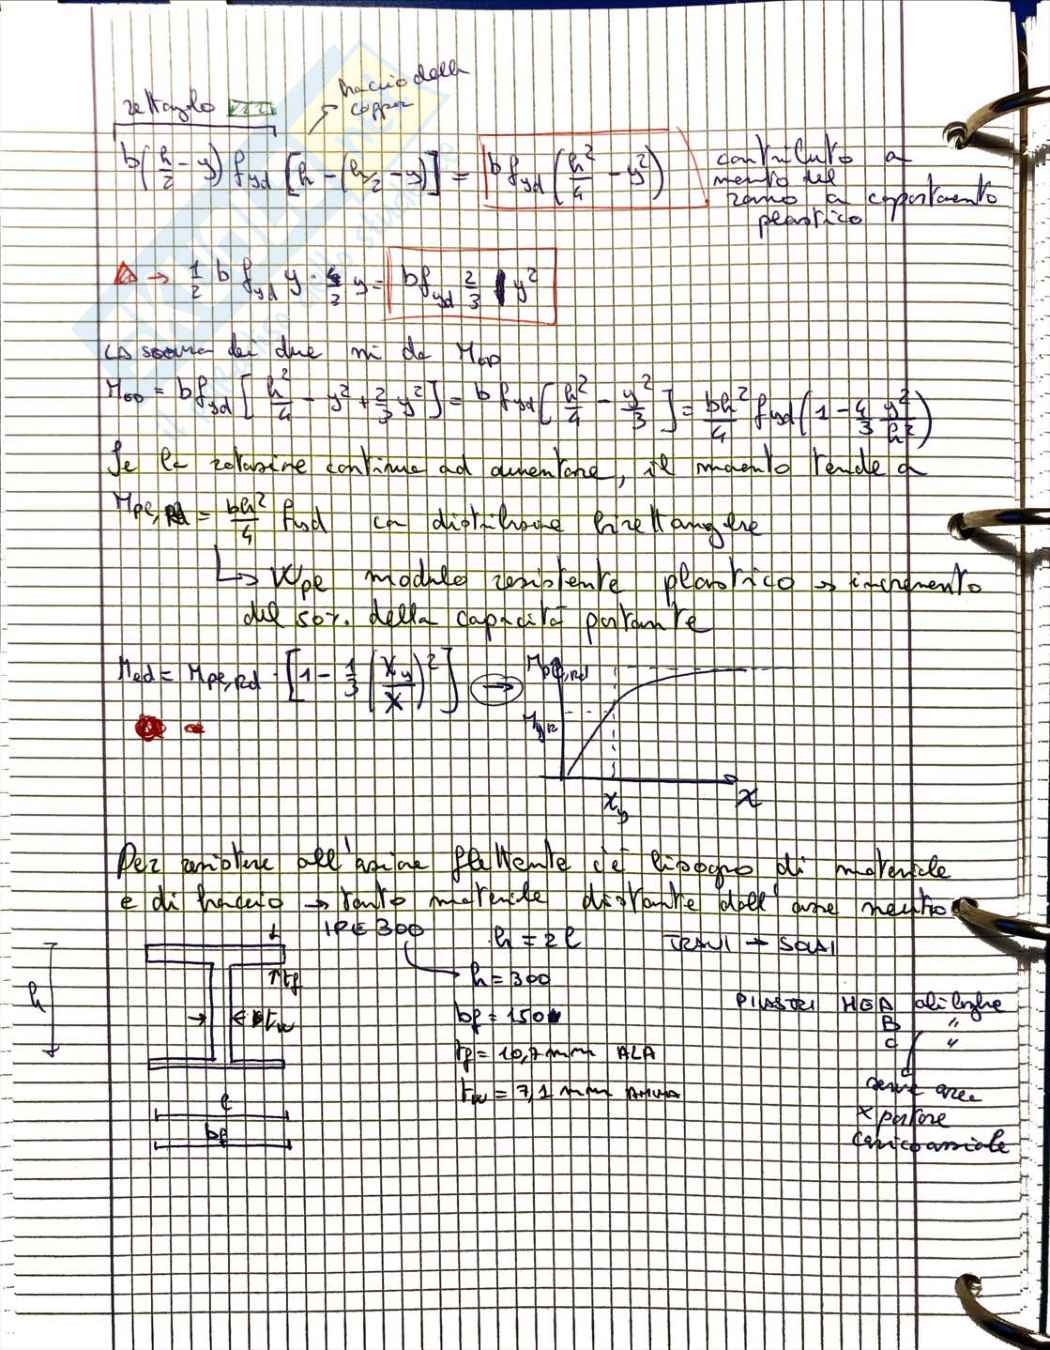 rettangolo
braccio della
coppia
b(h/2 - y) fyd [h - (h/2 - y)] = bfyd (h²/4 - y²)
contributo a
mento del
ramo a coportaento
plastico
→ 1/2 b fyd y · 4/3 y = bfyd 2/3 y²
↳ somma dei due mi dà Mep
Mep = bfyd [h²/4 - y² + 2/3 y²] = bfyd [h²/4 - y²/3] = bh²/4 fyd (1 - 4/3 y²/h²)
Se la rotazione continua ad aumentare, il momento tende a
Mpe,Rd = bh²/4 fyd con distribuzione birettangolare
↳ Wpe modulo resistente plastico → incremento
del 50% della capacità portante
Med = Mpe,Rd · [1 - 1/3 (χy/χ)²] →
Mpe,Rd
χy
χ
Per resistere all'azione flettente c'è bisogno di materiale
e di braccio → tanto materiale distante dall'asse neutro
IPE 300
h = 2l
TRAVI → SOLAI
h
tf
tw
h = 300
bf = 150
tf = 10,7 mm ALA
tw = 7,1 mm ANIMA
l
bf
PILASTRI HEA ali larghe
B "
C "
serve area
x portare
carico assiale